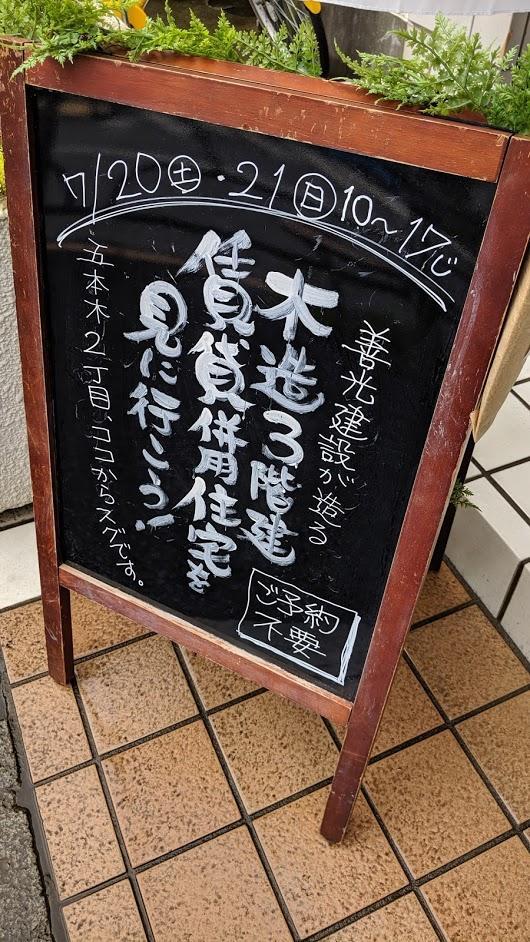 7/20㊏・21㊐10〜17じ
善光建設が造る
木造3階建
賃貸併用住宅を
見に行こう！
五本木2丁目、ココからスグです。
ご予約
不要